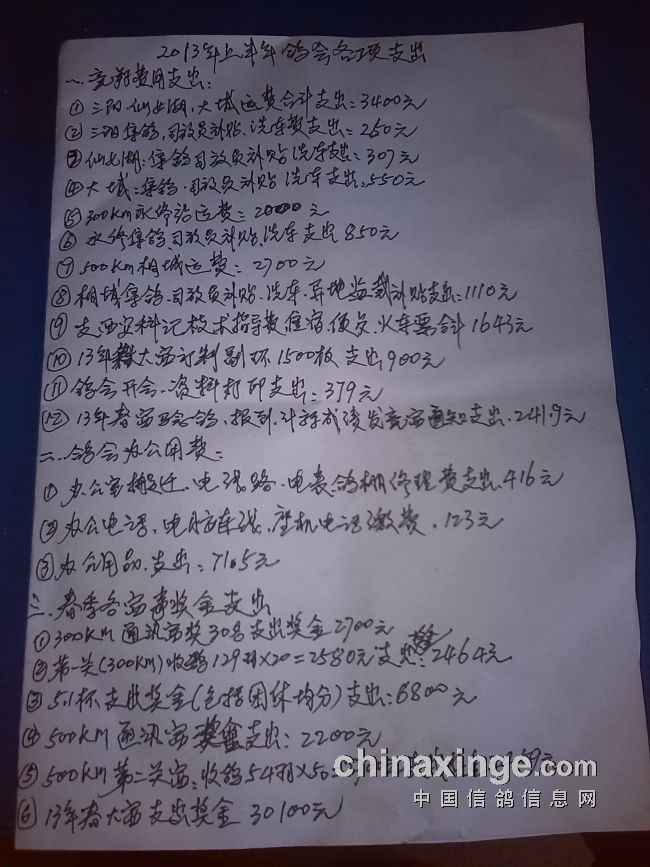 2013年上半年鸽会各项支出
一、竞翔费用支出:
① 三阳、仙女湖、大城运费合计支出:3400元
② 三阳集鸽、司放员补贴、洗车费支出:250元
③ 仙女湖:集鸽司放员补贴洗车支出:307元
④ 大城:集鸽、司放员补贴洗车支出:550元
⑤ 300km永修站运费:2000元
⑥ 永修集鸽司放员补贴,洗车支出850元
⑦ 500km桐城运费:2700元
⑧ 桐城集鸽、司放员补贴、洗车、异地监裁补贴支出:1110元
⑨ 支西安科汇技术指导费住宿、便免、火车票合计1643元
⑩ 13年大赛订制副环1500枚支出900元
⑪ 鸽会开会、资料打印支出:379元
⑫ 13年春赛鸽,报到、成绩发竞赛通知支出.241.9元
二、鸽会办公用费:
① 办公室搬迁、电线路、电表、鸽棚修理费支出.416元
② 办公电话、电脑连线、座机电话缴费.123元
③ 办公用品.支出:71.5元
三、春季各赛事奖金支出
① 300km通讯赛奖30名支出奖金2700元
② 第一关(300km)收鸽129羽×20=2580元支出:2464元
③ 5.1杯支出奖金(包括团体均分)支出:6800元
④ 500km通讯赛奖金支出:2200元
⑤ 500km第二关赛:收鸽54羽×50=
⑥ 13年春大赛支出奖金30100元
chinaxinge.com
中国信鸽信息网